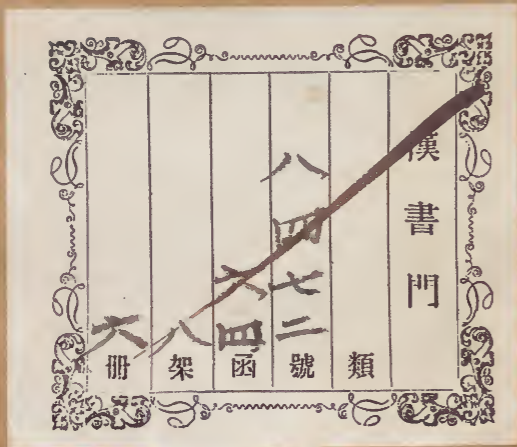 漢書門
類
八四七二號
六四函
八架
六冊